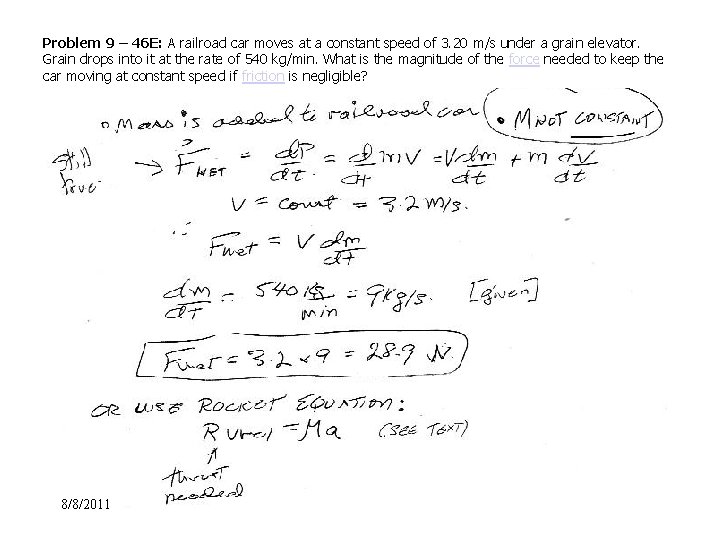 Problem 9 – 46E: A railroad car moves at a constant speed of 3.20 m/s under a grain elevator.
Grain drops into it at the rate of 540 kg/min. What is the magnitude of the force needed to keep the
car moving at constant speed if friction is negligible?
• Mass is added to railroad car • M NOT CONSTANT
still have → F⃗NET = dP/dt = d/dt mV = V dm/dt + m dV/dt
V = const = 3.2 m/s.
∴ Fnet = V dm/dt
dm/dt = 540 kg/min = 9 kg/s. [given]
Fnet = 3.2 x 9 = 28.9 N.
OR USE ROCKET EQUATION:
R Vrel = Ma (SEE TEXT)
↑
thrust
needed
8/8/2011